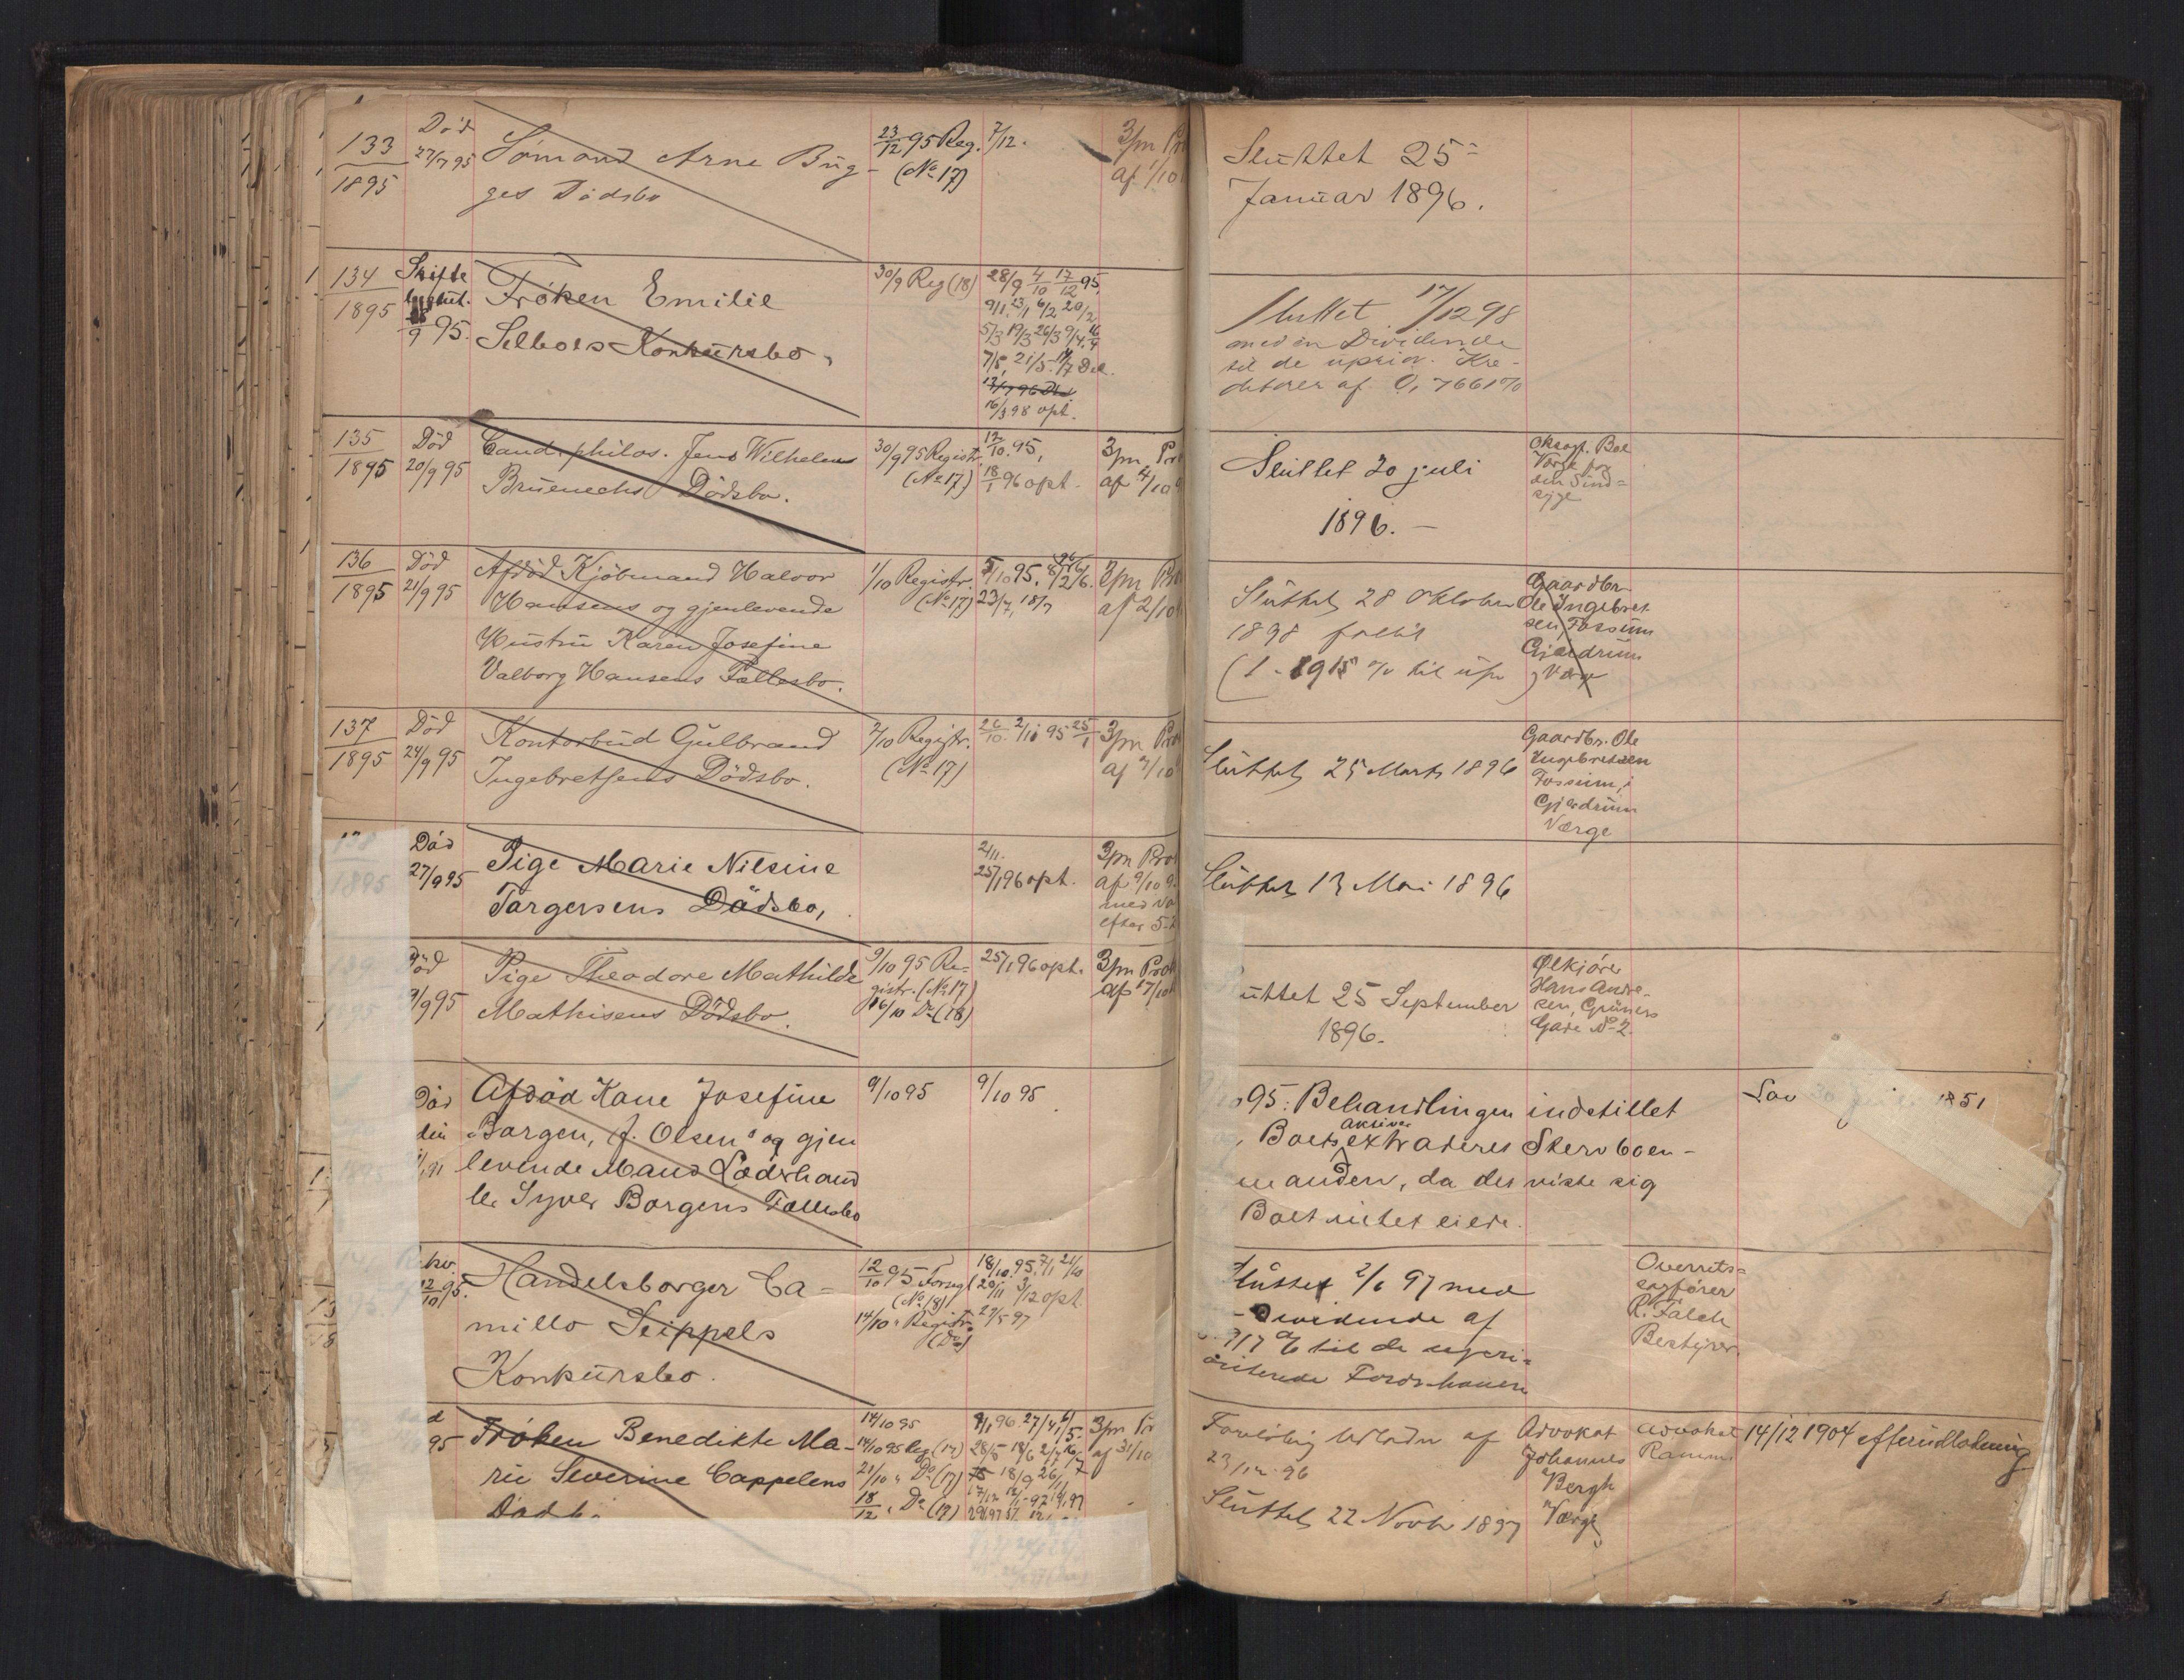 133
1895
Död
27/7 95
Sömand Arne Büg-
ges Dödsbo
23/12 95 Reg.
(No 17)
7/12.
3/m Pr
af 1/10
Sluttet 25
Januar 1896.
134
1895
Skifte
9 95.
Fröken Emilie
Selboes Konkursbo
30/9 Reg (18)
28/9 4/10 17/12 95,
9/1 23/1 6/2 20/2
5/3 19/3 26/3 9/4
7/5, 21/5
16/3 98 opt.
Sluttet 17/12 98
med en Dividende
til de uprior. Kre-
ditorer af 0,7661%
135
1895
Död
20/9 95
Cand. philos. Jens Wilhelm
Bruenechs Dödsbo.
30/9 95 Registr.
(No 17)
12/10. 95,
18/1 96 opt.
3/m Pr
af 4/10
Sluttet 20 juli
1896. —
136
1895
Död
21/9 95
Afdöd Kjöbmand Halvor
Hansens og gjenlevende
Hustru Karen Josefine
Valborg Hansens Fællesbo.
1/10 Registr.
(No 17)
5/10 95.
23/7, 18/7
3/m Pr
af 2/10
Sluttet 28 Oktober
1898 fallit
Gaardbr.
Ole Ingebret
sen, Fossum
Gjerdrum
Værge
137
1895
Död
24/9 95
Kontorbud Gulbrand
Ingebretsens Dödsbo.
2/10 Registr.
(No 17)
26/10. 2/11 95 25/1
3/m Pr
af 7/10
Sluttet 25 Marts 1896
Gaardbr. Ole
Ingebretsen
Fossum i
Gjerdrum
Værge
1895
Död
27/9 95
Pige Marie Nilsine
Torgersens Dödsbo,
2/11.
25/1 96 opt.
3/m Pro
af 9/10 9
med Va
efter 5-
Sluttet 13 Mai 1896
öd
9 95
Pige Theodore Mathilde
Mathisens Dödsbo.
9/10 95 Re-
gistr. (No 17)
16/10 Do (18)
25/1 96 opt.
3/m Pro
af 17/10
uttet 25 September
1896.
Ölkjörer
Hans Andre-
sen, Grüners
Gade No 2.
Död
den
Afdöd Kone Josefine
Borgen, f. Olsen's og gjen
levende Mand Læderhand
ler Syver Borgens Fællesbo
9/10 95
9/10 95
95: Behandlingen indstillet
Boets Aktiver extraderes Stervboen-
manden, da det viste sig
Boet intet eiede.
Lov 1851
12/10 95.
Handelsborger Ca-
millo Seippels
Konkursbo.
12/10 95 Forsegl
(No 18)
14/10 " Registr.
(Do)
18/10. 95.
20/11 3/12 opt
29/5 97
Sluttet 2/6 97 med
Dividende af
717 % til de upri-
oriterede Fordr.havere
Overrets-
sagförer
R. Falch
Bestyrer.
95
Fröken Benedikte Ma-
rie Severine Cappelens
Dödsb
14/10 95
14/10 95 Reg (17)
21/10 " Do (17)
18/12 " Do (17)
3/m Pr
af 31/10
Forelöbig Udlodn af
23/12 96
Sluttet 22 Novbr 1897
Advokat
Johannes
Bergh
Værge
Advokat
Ramm.
14/12 1904 efterudlodning